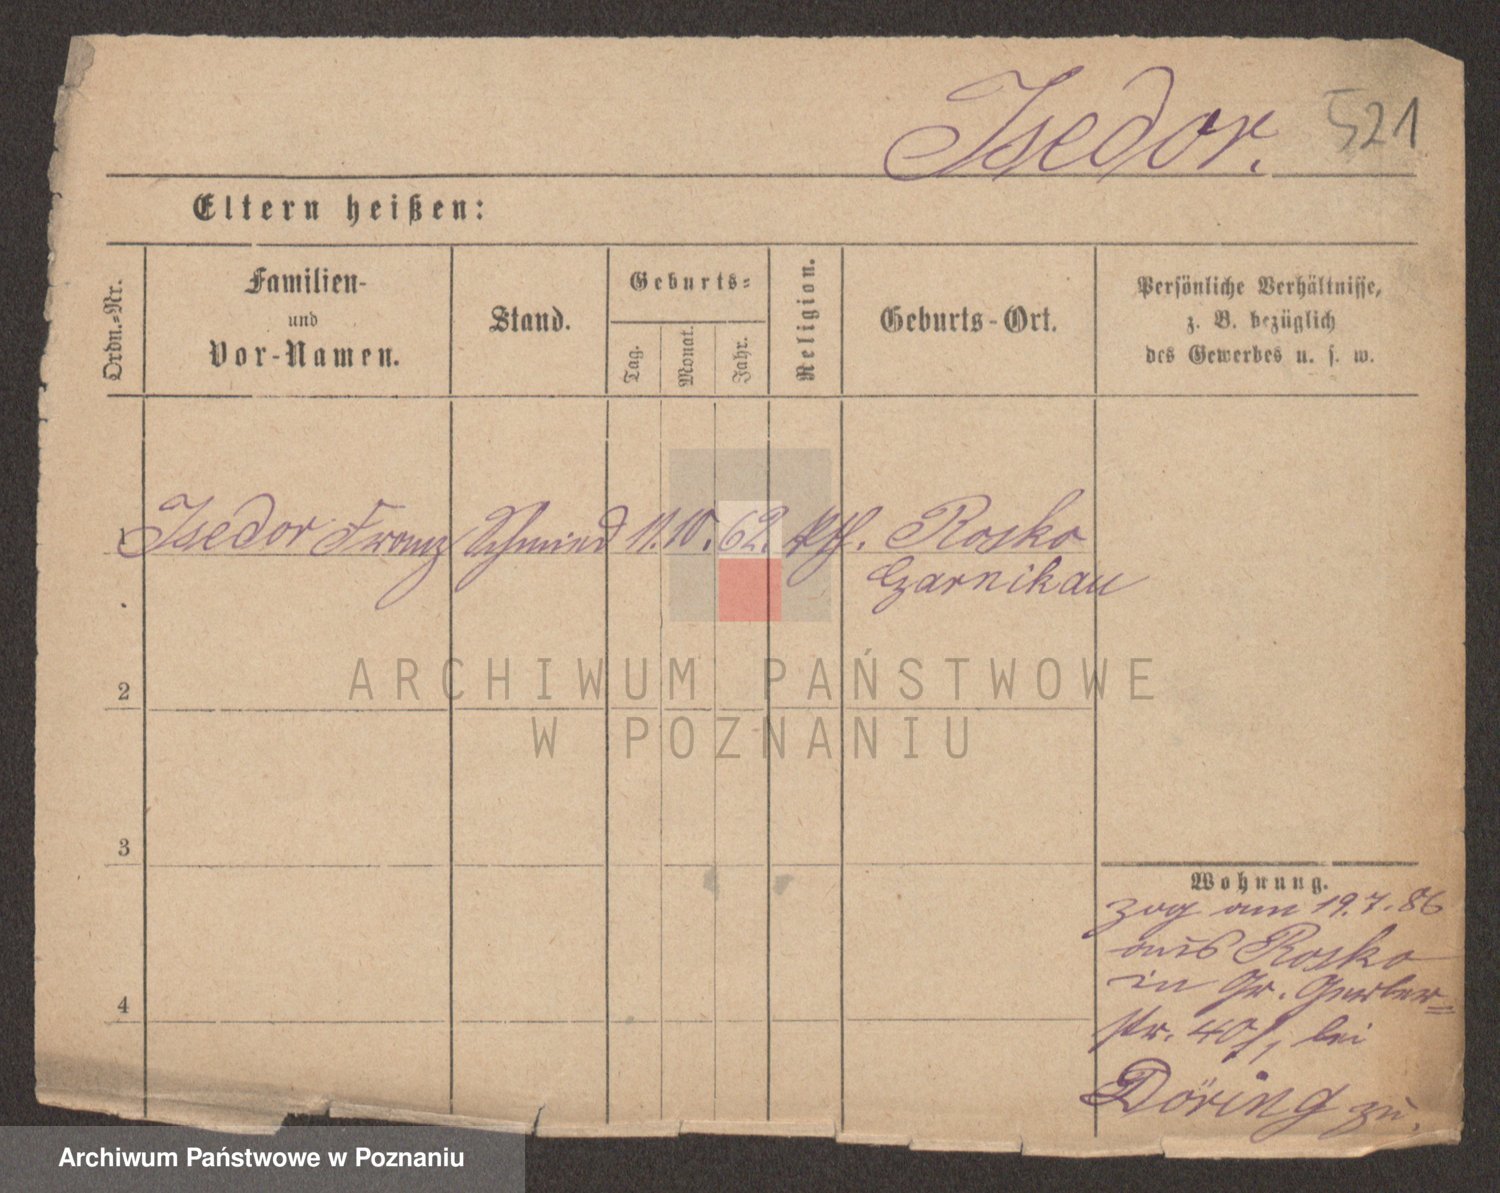 Isedor. 521
Eltern heißen:
Ordn.-Nr.
Familien-
und
Vor-Namen.
Stand.
Geburts-
Tag.
Monat.
Jahr.
Religion.
Geburts-Ort.
Persönliche Verhältnisse,
z. B. bezüglich
des Gewerbes u. s. w.
1 Isedor Franz Schmied 11. 10. 62. kth. Rosko
Czarnikau
ARCHIWUM PAŃSTWOWE
W POZNANIU
2
3
4
Wohnung.
zog am 19.7.86
aus Rosko
in Gr. Gerber=
str. 40 bei
Döring zu.
Archiwum Państwowe w Poznaniu